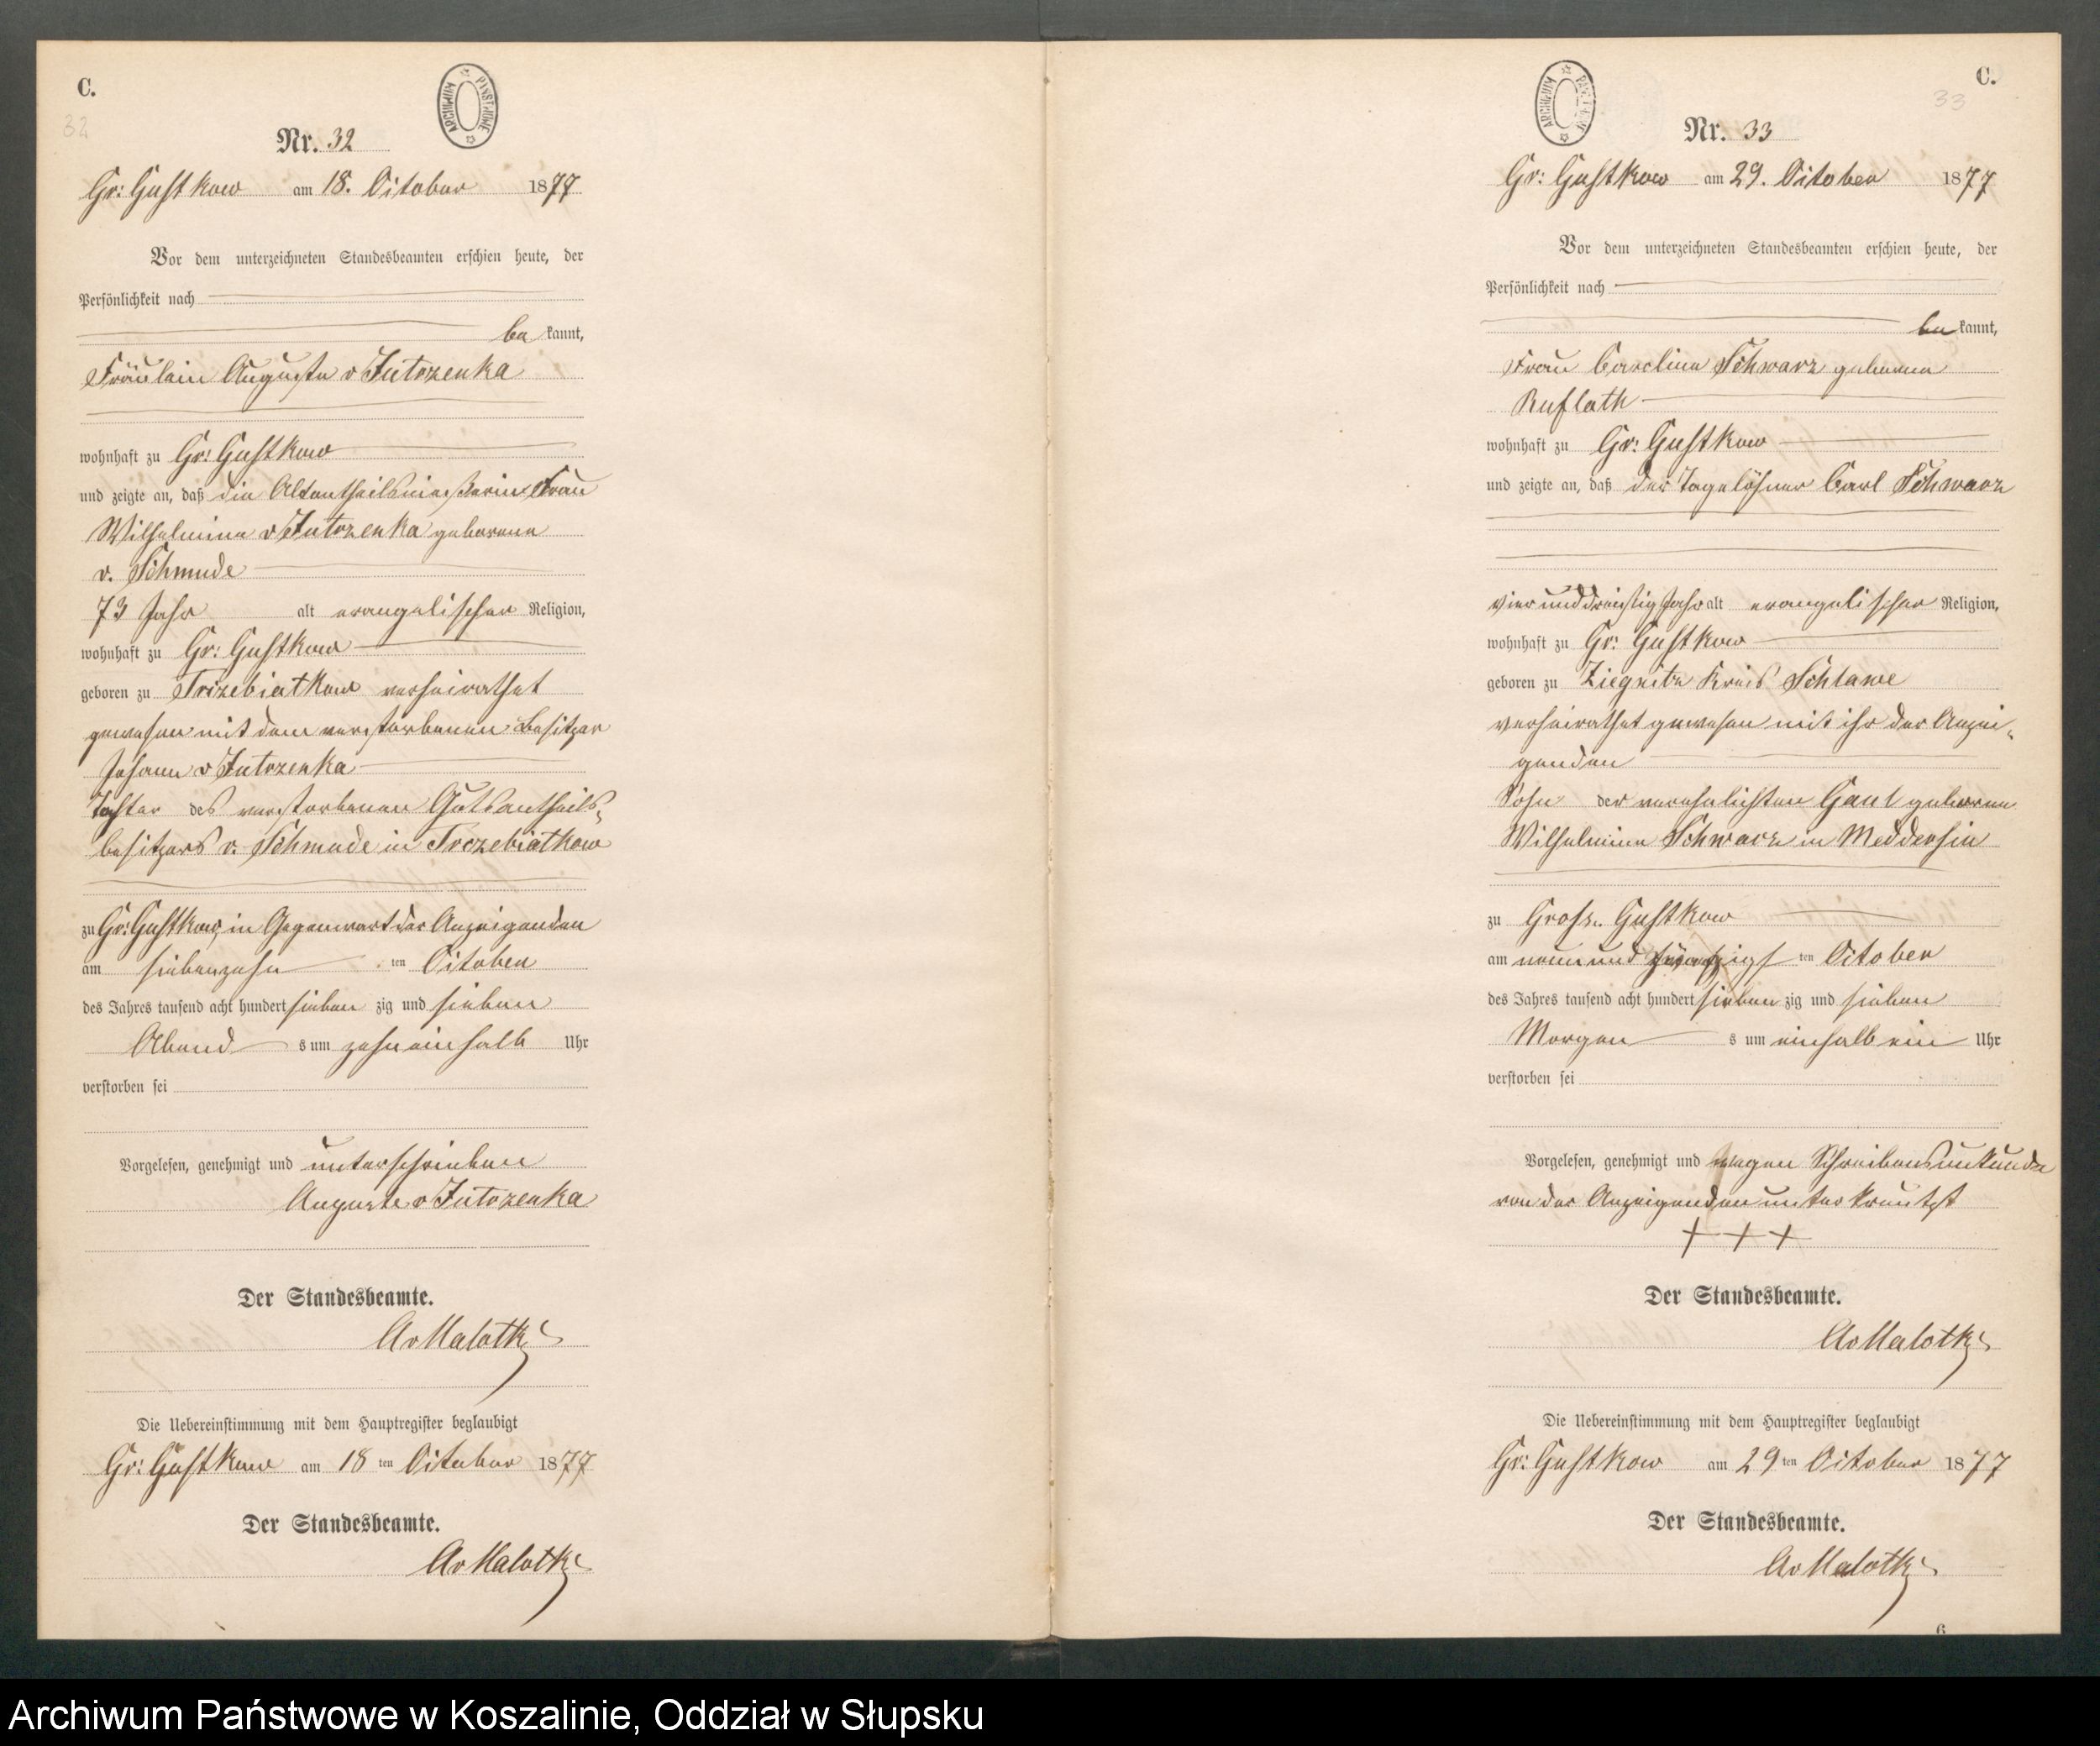 C.
32
ARCHIWUM PAŃSTWOWE
Nr. 32
Gr: Gustkow am 18. October 1877
Vor dem unterzeichneten Standesbeamten erschien heute, der
Persönlichkeit nach
be kannt,
Fräulein Auguste v Jutrzenka
wohnhaft zu Gr: Gustkow
und zeigte an, daß die Frau
Wilhelmine v Jutrzenka geborene
v. Schmude
73 Jahr alt evangelischer Religion,
wohnhaft zu Gr: Gustkow
geboren zu Trzebiatkow verheirathet
gewesen mit dem verstorbenen Besitzer
Johann v Jutrzenka
Tochter des verstorbenen Gutsantheils-
besitzers v. Schmude in Trzebiatkow
zu Gr: Gustkow, in Gegenwart der Anzeigenden
am siebenzehn ten October
des Jahres tausend acht hundert sieben zig und sieben
Abend s um zehneinhalb Uhr
verstorben sei
Vorgelesen, genehmigt und unterschrieben
Auguste v Jutrzenka
Der Standesbeamte.
AvMalotki
Die Uebereinstimmung mit dem Hauptregister beglaubigt
Gr: Gustkow am 18 ten October 1877
Der Standesbeamte.
AvMalotki
C.
33
ARCHIWUM
Nr. 33
Gr: Gustkow am 29. October 1877
Vor dem unterzeichneten Standesbeamten erschien heute, der
Persönlichkeit nach
be kannt,
Frau Caroline Schwarz geborene
Ruflath
wohnhaft zu Gr: Gustkow
und zeigte an, daß der Tagelöhner Carl Schwarz
vierunddreißig Jahr alt evangelischer Religion,
wohnhaft zu Gr: Gustkow
geboren zu Ziegnitz Kreis Schlawe
verheirathet gewesen mit ihr der Anzei-
genden
Sohn der verehelichten Gaul geborene
Wilhelmine Schwarz in Meddersin
zu Gross Gustkow
am neunundzwanzigs ten October
des Jahres tausend acht hundert sieben zig und sieben
Morgen s um einhalb ein Uhr
verstorben sei
Vorgelesen, genehmigt und wegen Schreibensunkunde
von der Anzeigenden unterkreuzt
+ + +
Der Standesbeamte.
AvMalotki
Die Uebereinstimmung mit dem Hauptregister beglaubigt
Gr: Gustkow am 29 ten October 1877
Der Standesbeamte.
AvMalotki
6
Archiwum Państwowe w Koszalinie, Oddział w Słupsku